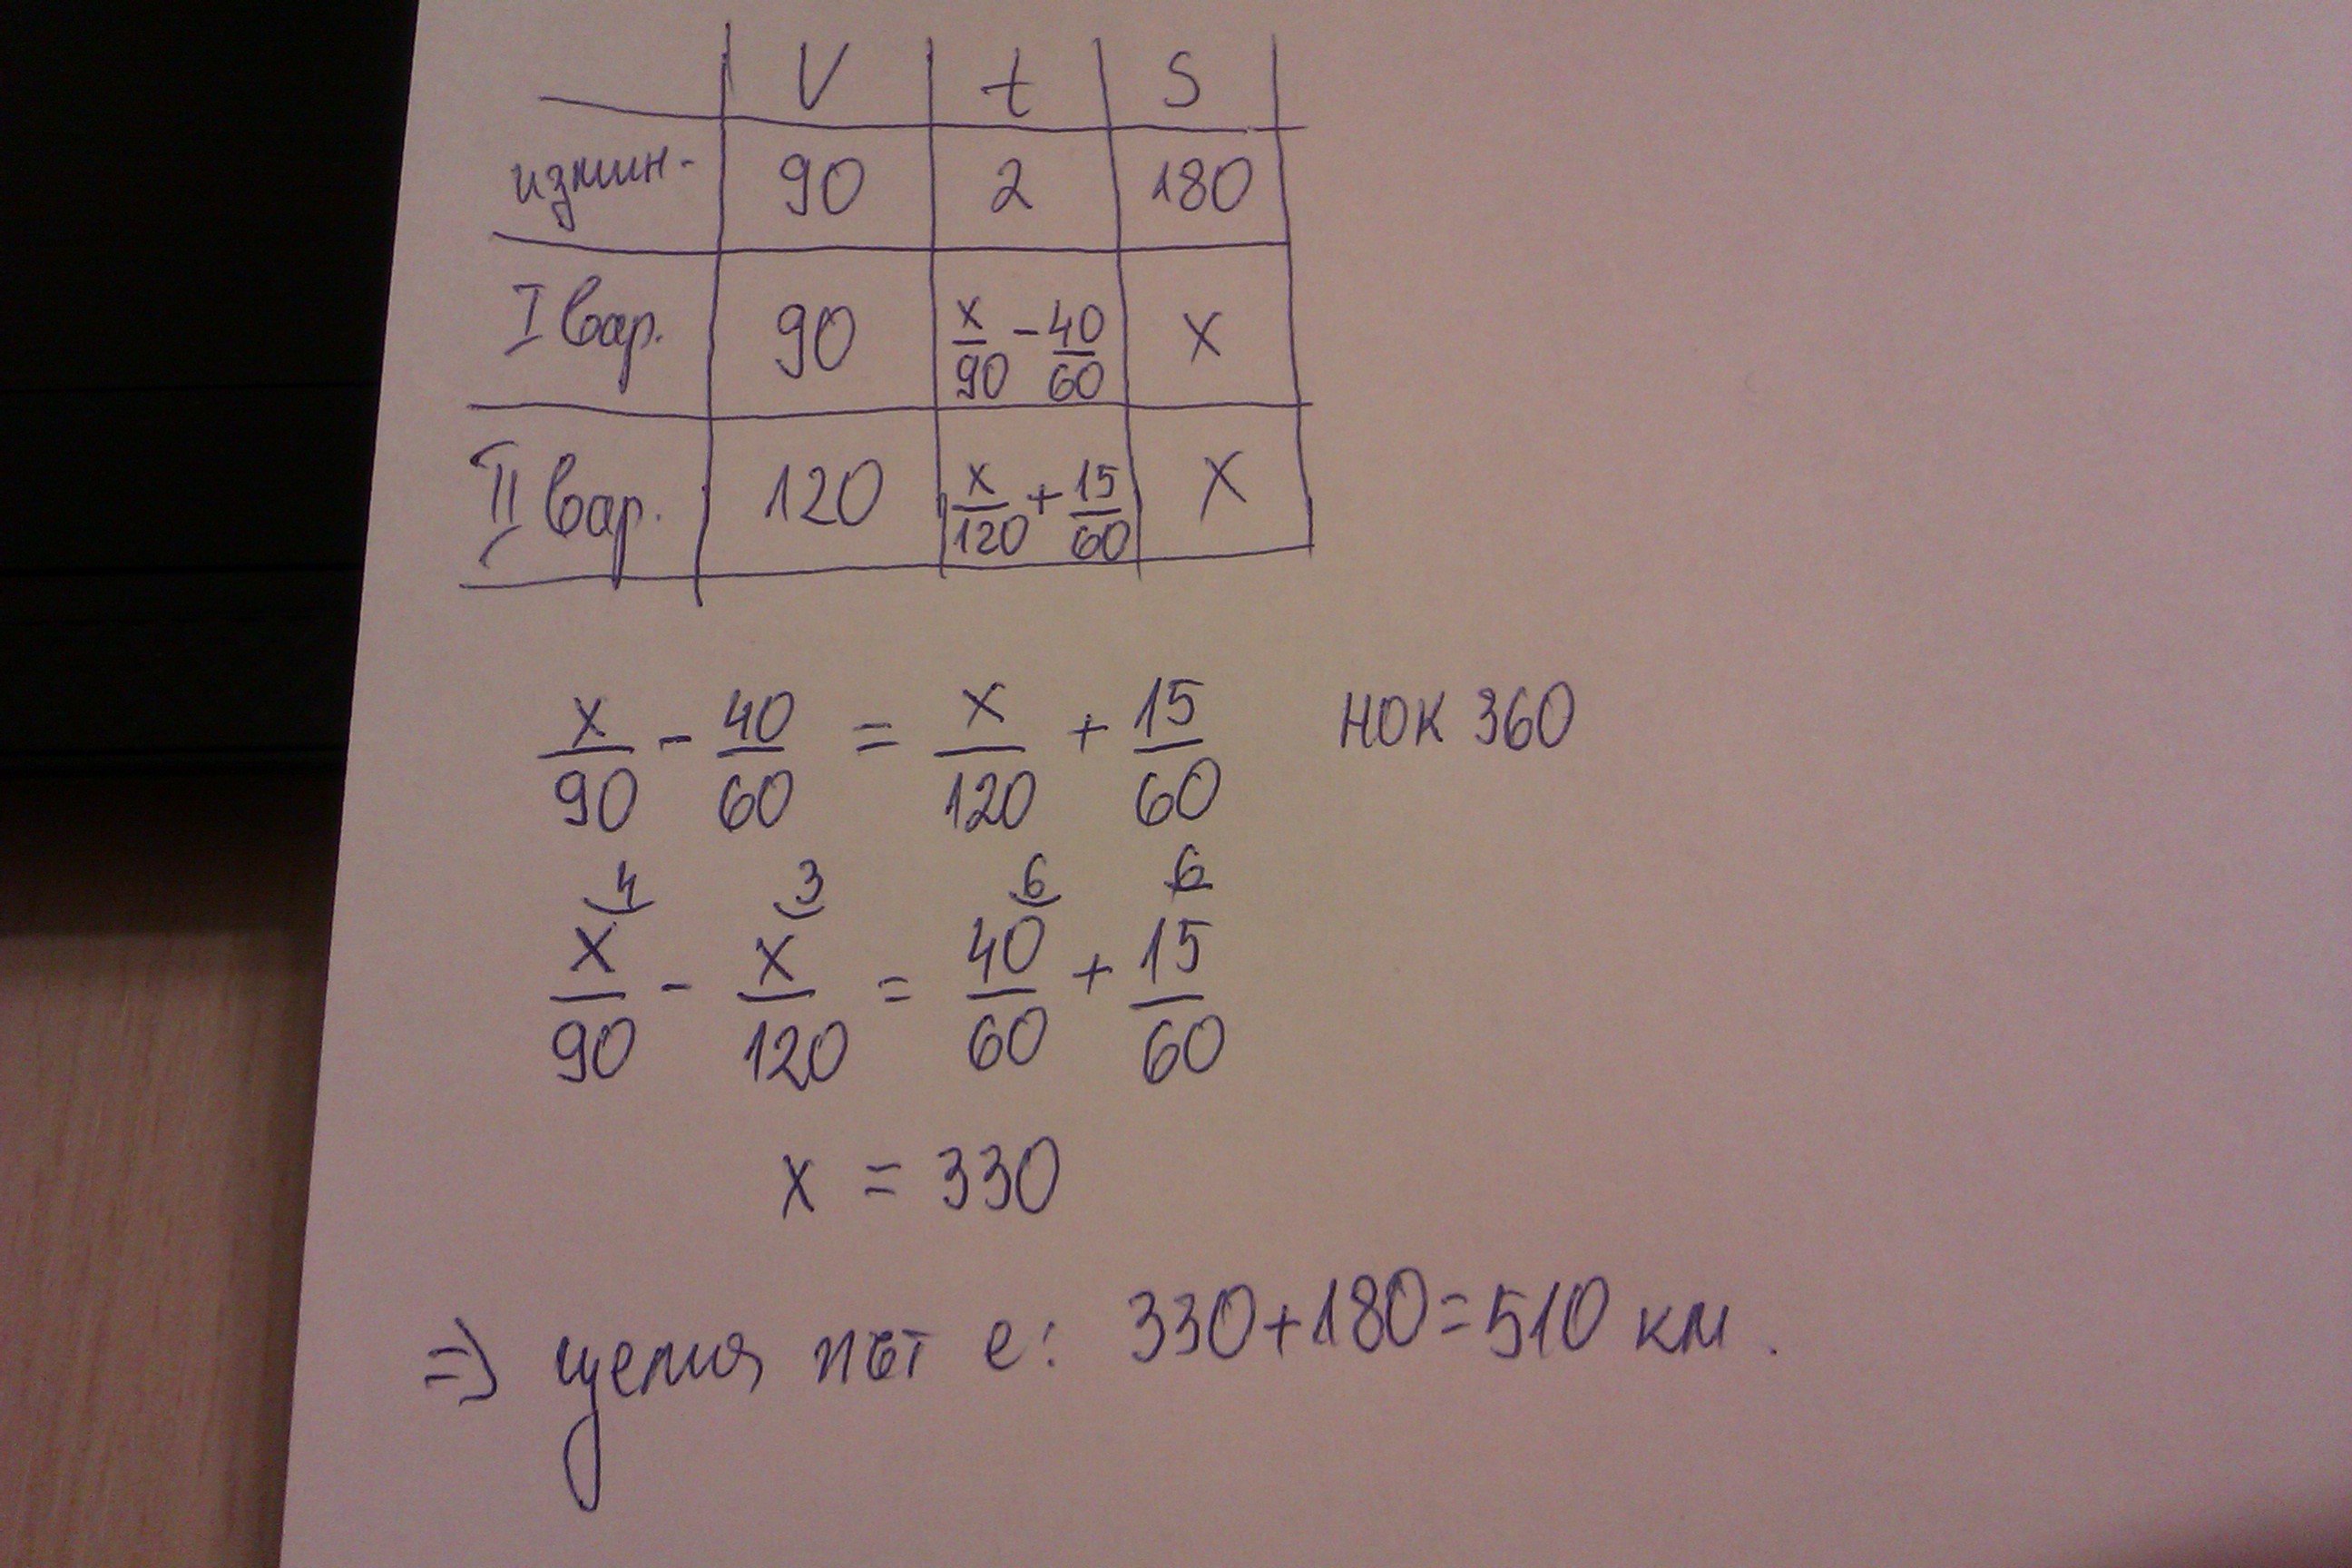 V t S
измин. 90 2 180
I вар. 90 x/90 - 40/60 x
II вар. 120 x/120 + 15/60 x
x/90 - 40/60 = x/120 + 15/60 НОК 360
4 3 6 6
x/90 - x/120 = 40/60 + 15/60
x = 330
=> целия път е: 330+180=510 км.